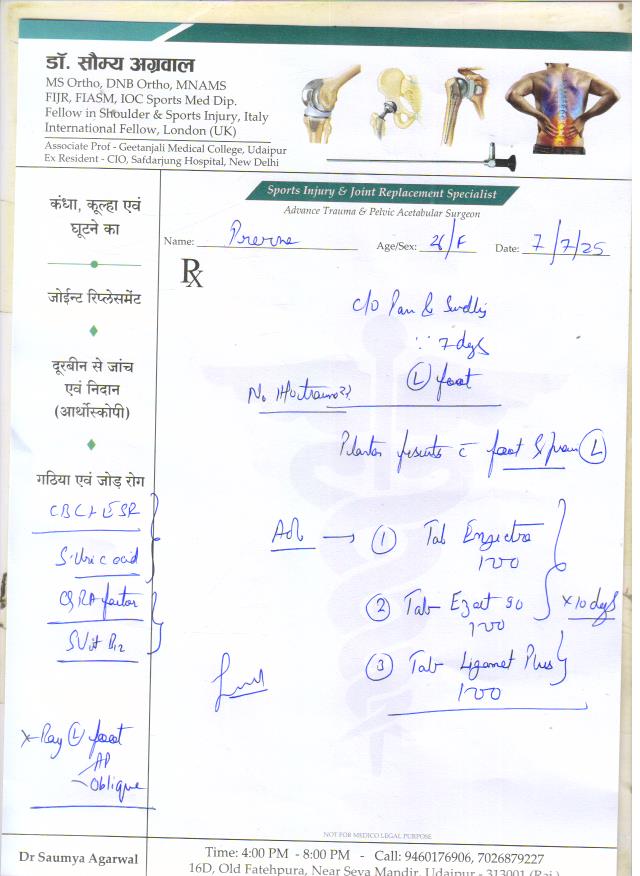 डॉ. सौम्य अग्रवाल
MS Ortho, DNB Ortho, MNAMS
FIJR, FIASM, IOC Sports Med Dip.
Fellow in Shoulder & Sports Injury, Italy
International Fellow, London (UK)
Associate Prof - Geetanjali Medical College, Udaipur
Ex Resident - CIO, Safdarjung Hospital, New Delhi
Sports Injury & Joint Replacement Specialist
Advance Trauma & Pelvic Acetabular Surgeon
Name: Age/Sex: 26/F Date: 7/7/25
Rx
कंधा, कूल्हा एवं
घूटने का
जोईन्ट रिप्लेसमेंट
दूरबीन से जांच
एवं निदान
(आर्थोस्कोपी)
गठिया एवं जोड़ रोग
C/O Pain & Swelling
∵ 7 days
(L) foot
No H/o trauma
Plantar foot (L)
CBC + ESR
S. Uric acid
RA factor
S Vit B12
X-Ray (L) foot
AP
Oblique
Adv → (1) Tab
100
(2) Tab 90 x 10 days
100
(3) Tab Ligamet Plus
100
NOT FOR MEDICO LEGAL PURPOSE
Dr Saumya Agarwal
Time: 4:00 PM - 8:00 PM - Call: 9460176906, 7026879227
16D, Old Fatehpura, Near Seva Mandir, Udaipur - 313001 (Raj.)